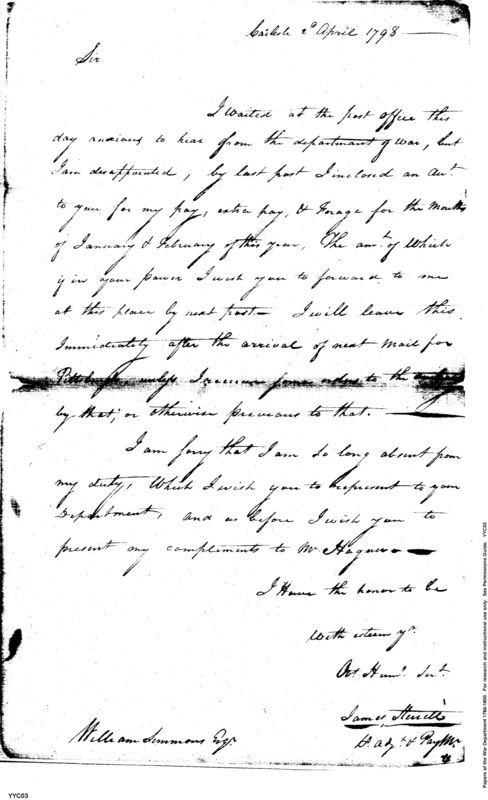 Carlisle 2d April 1798
Sir
I waited at the post office this
day anxious to hear from the department of War, but
I am disappointed, by last post I inclosed an Acct.
to you for my pay, extra pay, & Forage for the Months
of January & February of this year, The amt. of Which
if in your power I wish you to forward to me
at this place by next post. I will leave this
Immidiately after the arrival of next Mail for
Pittsburgh unless I receive some orders to the
by that, or otherwise previous to that.
I am sorry that I am so long absent from
my duty, Which I wish you to represent to your
Department, and as before I wish you to
present my compliments to Mr.
I Have the honor to be
With esteem yr.
Obt. Huml. Sert.
James
D. adjt. & PayMr.
William Simmons Esqr.
YYC03
Papers of the War Department 1784-1800. For research and instructional use only. See Permissions Guide. YYC03